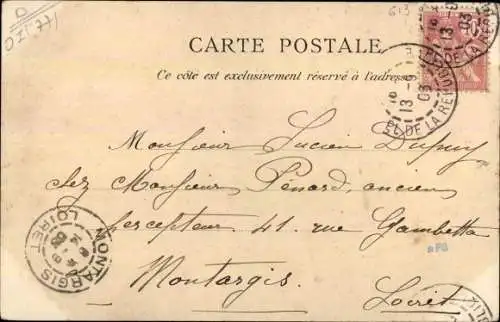 613
CARTE POSTALE
Ce côté est exclusivement réservé à l'adresse
PL. DE LA RÉPUBLIQUE
13 -6
03
Monsieur Lucien Dupuy
chez Monsieur Pénard, ancien
percepteur 41 rue Gambetta
Montargis.
Loiret
MONTARGIS
LOIRET